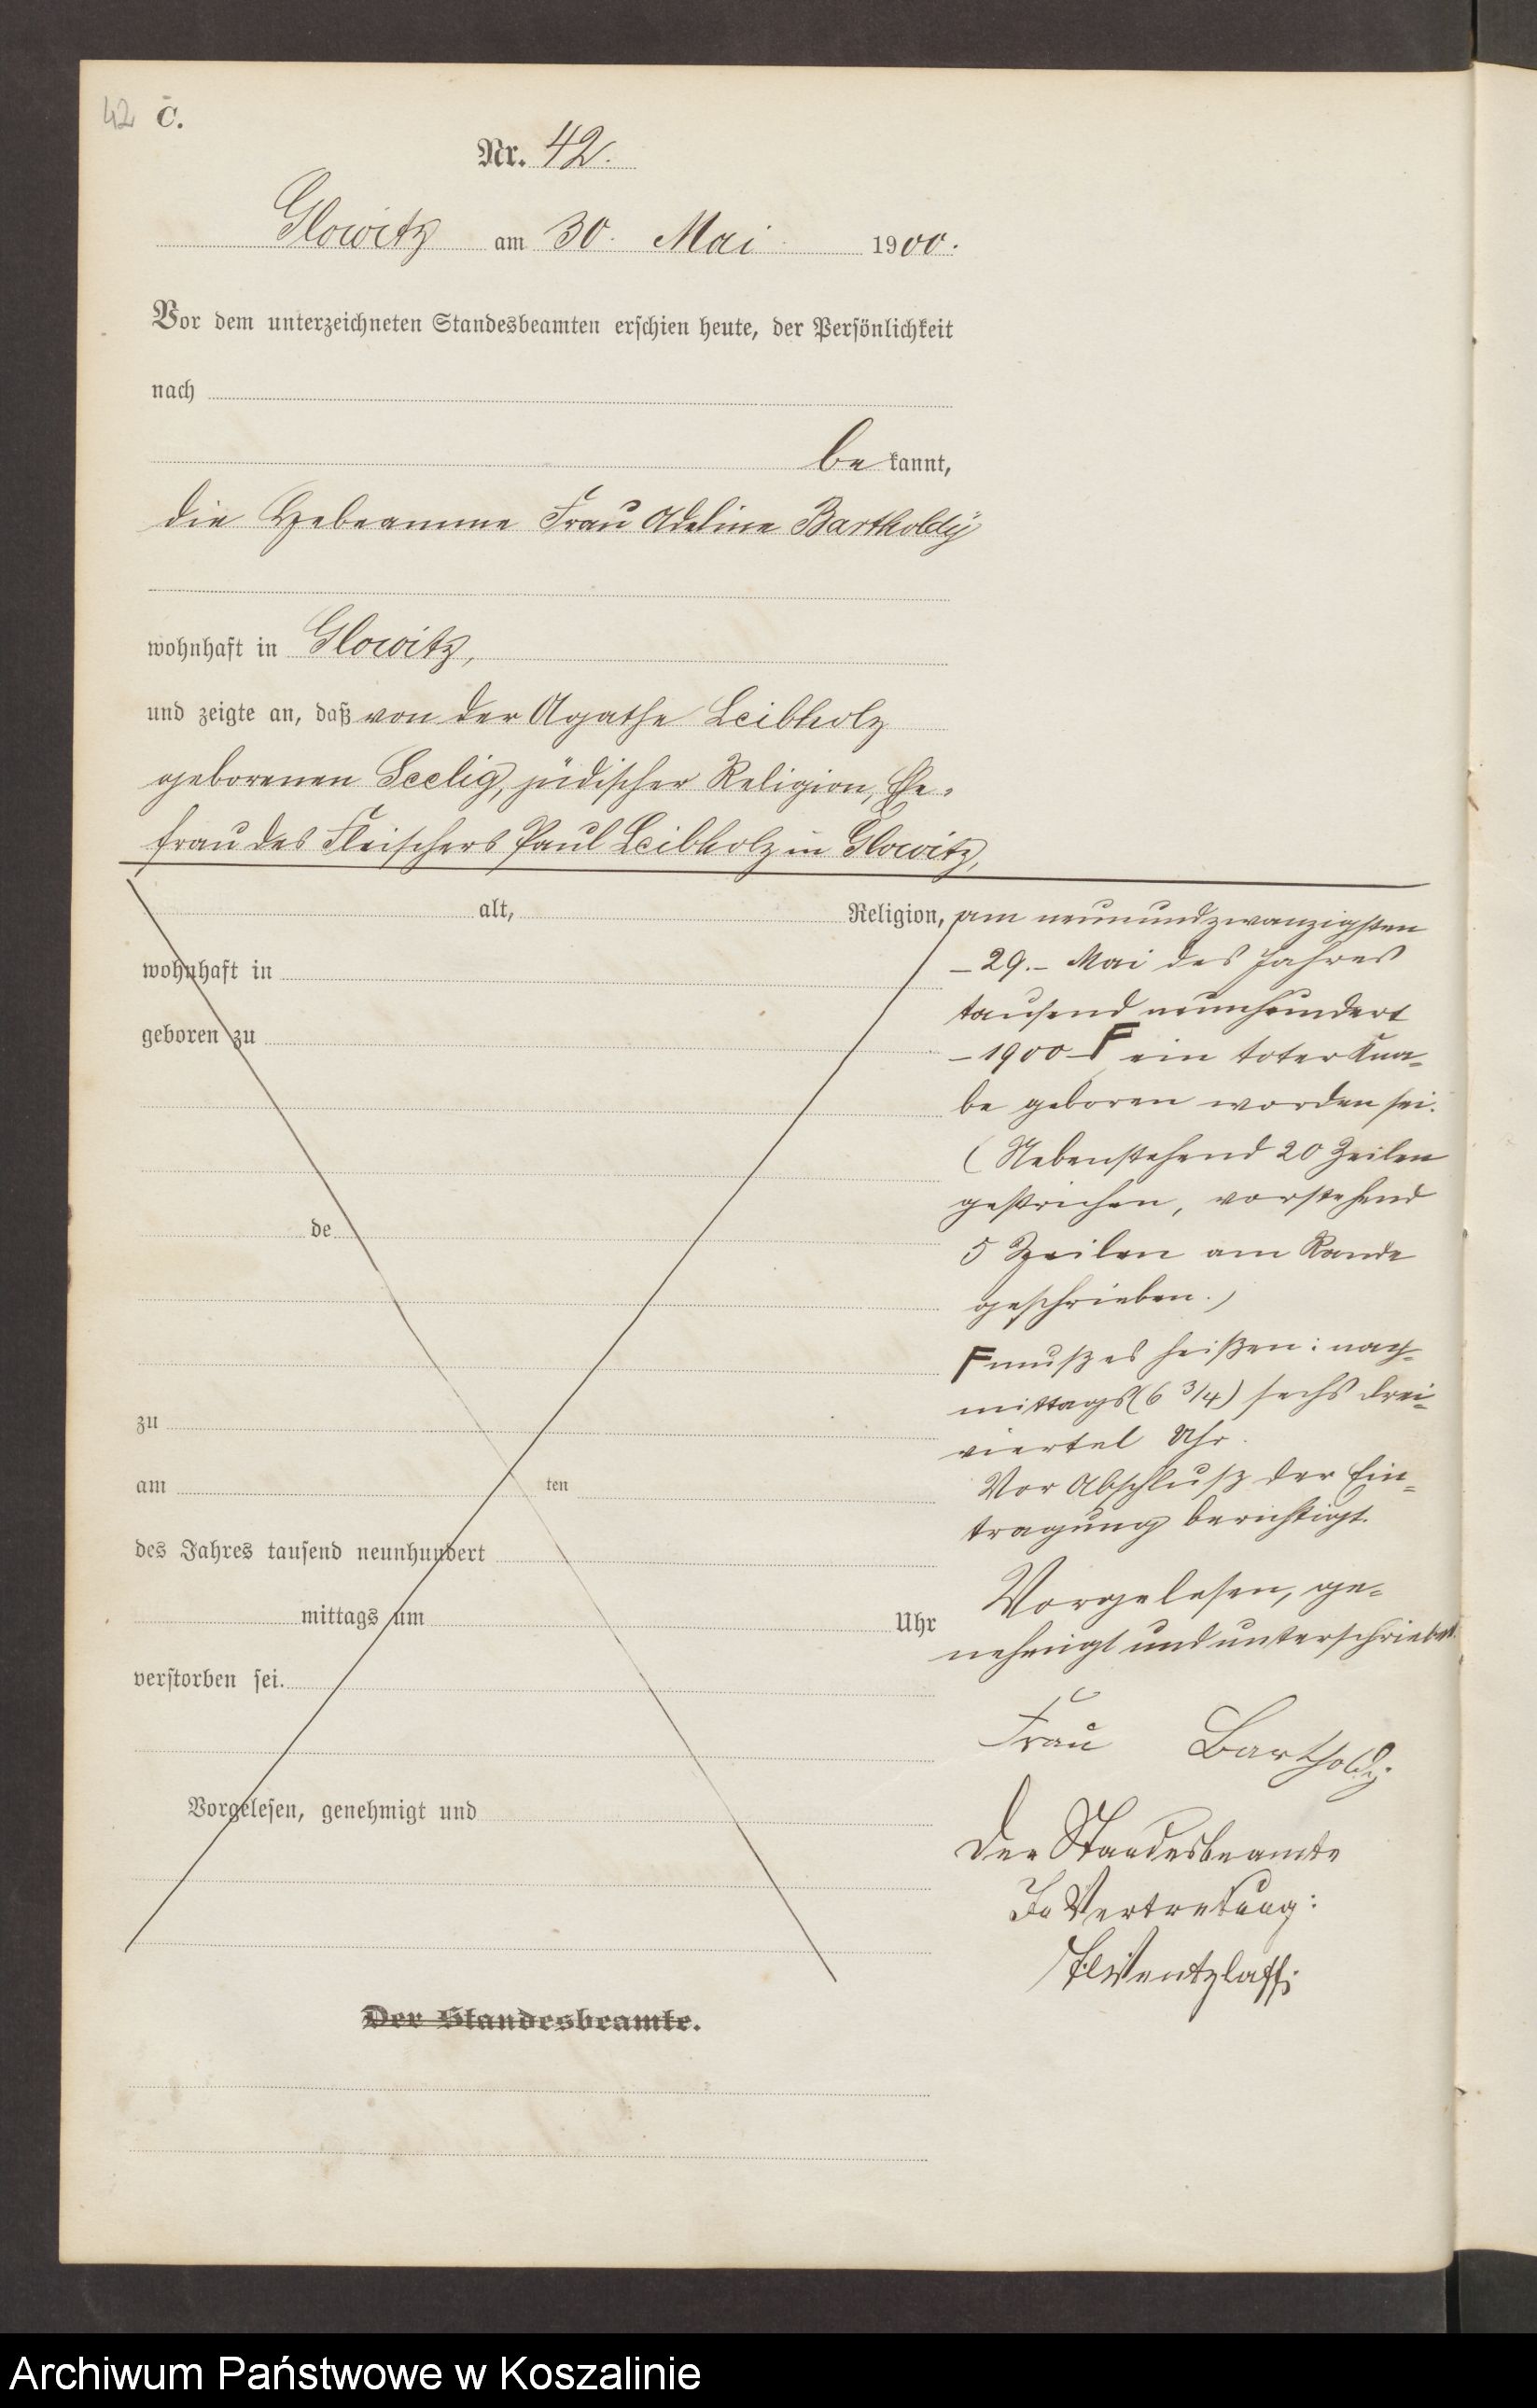 42 C.
Nr. 42.
Glowitz am 30. Mai 1900.
Vor dem unterzeichneten Standesbeamten erschien heute, der Persönlichkeit
nach
be kannt,
die Hebeamme Frau Adeline Bartholdÿ
wohnhaft in Glowitz,
und zeigte an, daß von der Agathe Leibholz
geborenen Seelig, jüdischer Religion, Ehe-
frau des Fleischers Paul Leibholz in Glowitz,
alt, Religion,
wohnhaft in
geboren zu
de
zu
am ten
des Jahres tausend neunhundert
mittags um Uhr
verstorben sei.
Vorgelesen, genehmigt und
Der Standesbeamte.
am neunundzwanzigsten
- 29. - Mai des Jahres
tausend neunhundert
- 1900 - F ein toter Kna-
be geboren worden sei.
(Nebenstehend 20 Zeilen
gestrichen, vorstehend
5 Zeilen am Rande
geschrieben.)
F muß es heißen: nach-
mittags (6 3/4) sechs drei-
viertel Uhr.
Vor Abschluß der Ein-
tragung berichtigt.
Vorgelesen, ge-
nehmigt und unterschrieben
Frau Bartholdÿ
Der Standesbeamte
In Vertretung:
Wentzlaff.
Archiwum Państwowe w Koszalinie